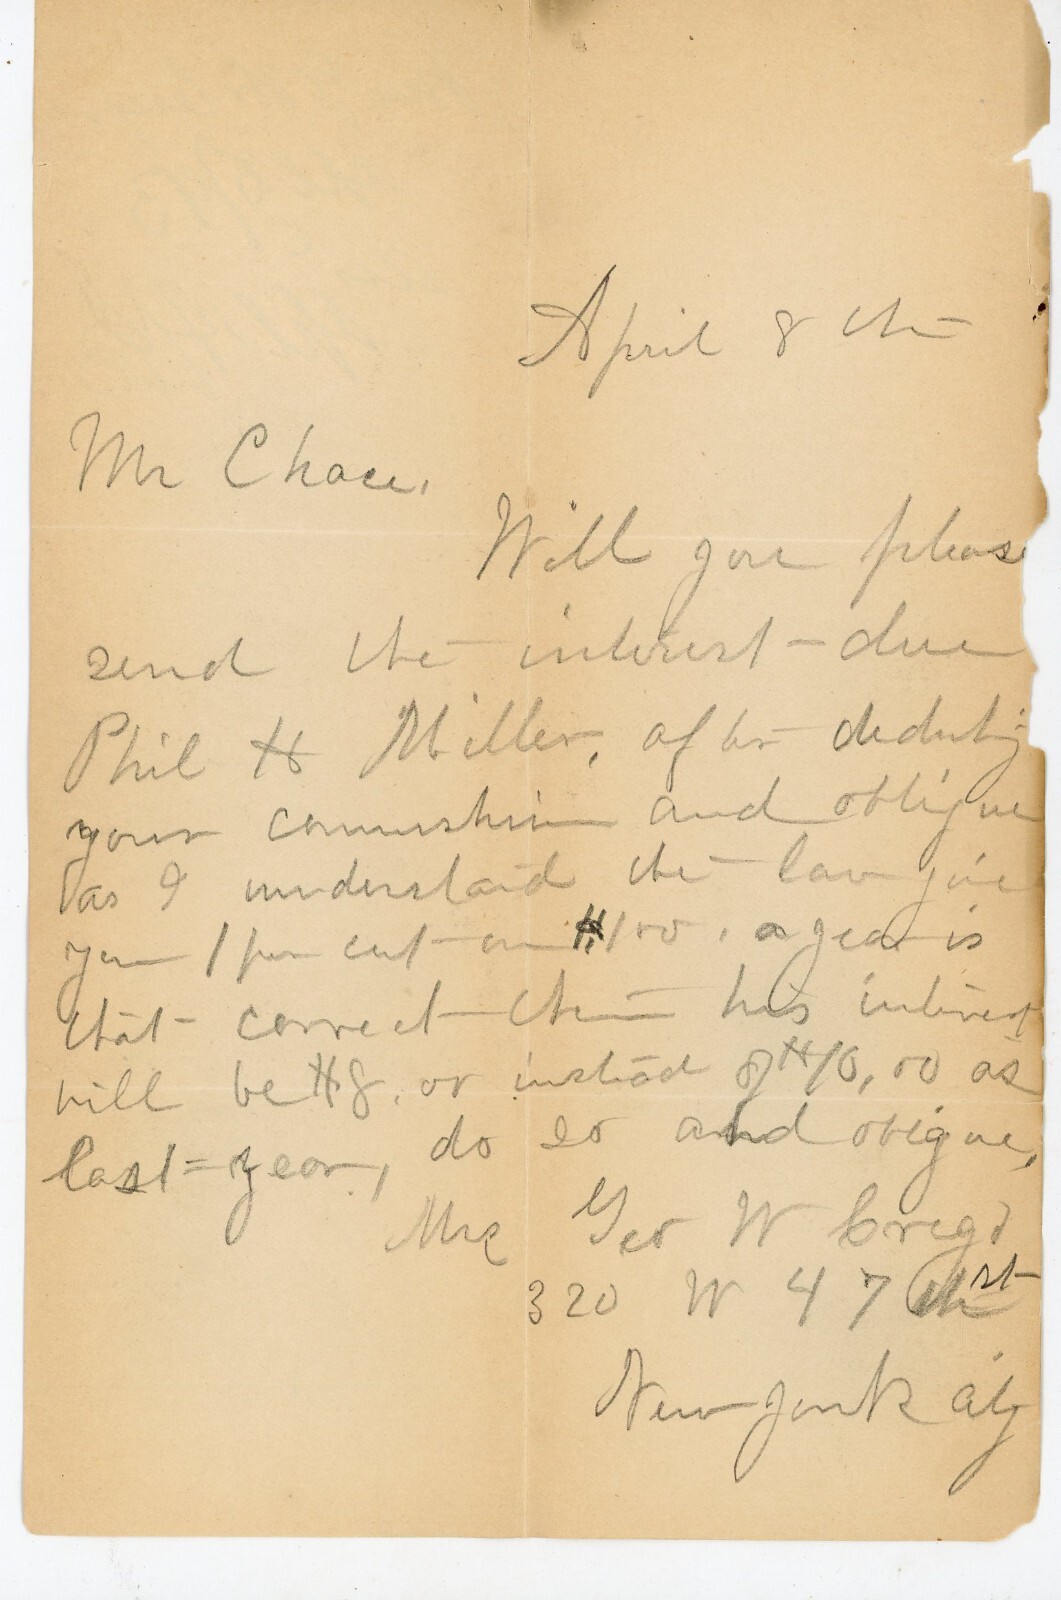 April 8 th
Mr Chace,
Will you pleas
send the interest due
Phil H Miller, after deducting
your commishion and obligue
as I understand the law give
you 1 per cent on $100. a year is
that correct then his interest
will be $8. 00 instead of $10,00 as
last year, do so and obligue,
Mrs Geo W
320 W 47 st
New York city